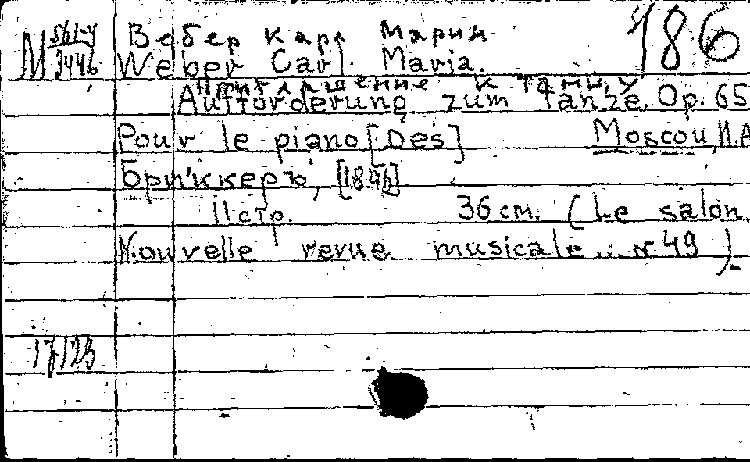 М 561-у
3446
186
Вебер Карл Мария
Weber Carl Maria.
Приглашение к танцу
Aufforderung zum Tanze. Op. 65
Pour le piano [Des] Moscou, П.А
Бриккеръ, [1846]
11 стр. 36 см. (Le salon.
Nouvelle revue musicale... № 49).
17123